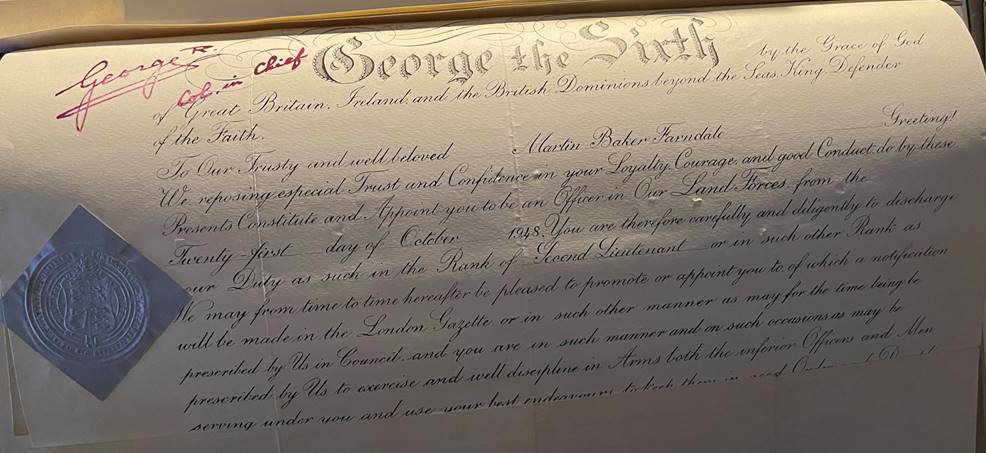 George R.
Col. in Chief
George the Sixth
by the Grace of God
of Great Britain, Ireland, and the British Dominions beyond the Seas, King, Defender
of the Faith.
To Our Trusty and well beloved Martin Baker Farndale Greeting!
We reposing especial Trust and Confidence in your Loyalty, Courage, and good Conduct, do by these
Presents Constitute and Appoint you to be an Officer in Our Land Forces from the
Twenty-first day of October 1948. You are therefore carefully and diligently to discharge
your Duty as such in the Rank of Second Lieutenant or in such other Rank as
We may from time to time hereafter be pleased to promote or appoint you to, of which a notification
will be made in the London Gazette, or in such other manner as may for the time being be
prescribed by Us in Council, and you are in such manner and on such occasions as may be
prescribed by Us to exercise and well discipline in Arms both the inferior Officers and Men
serving under you and use your best endeavours to keep them in good Order and